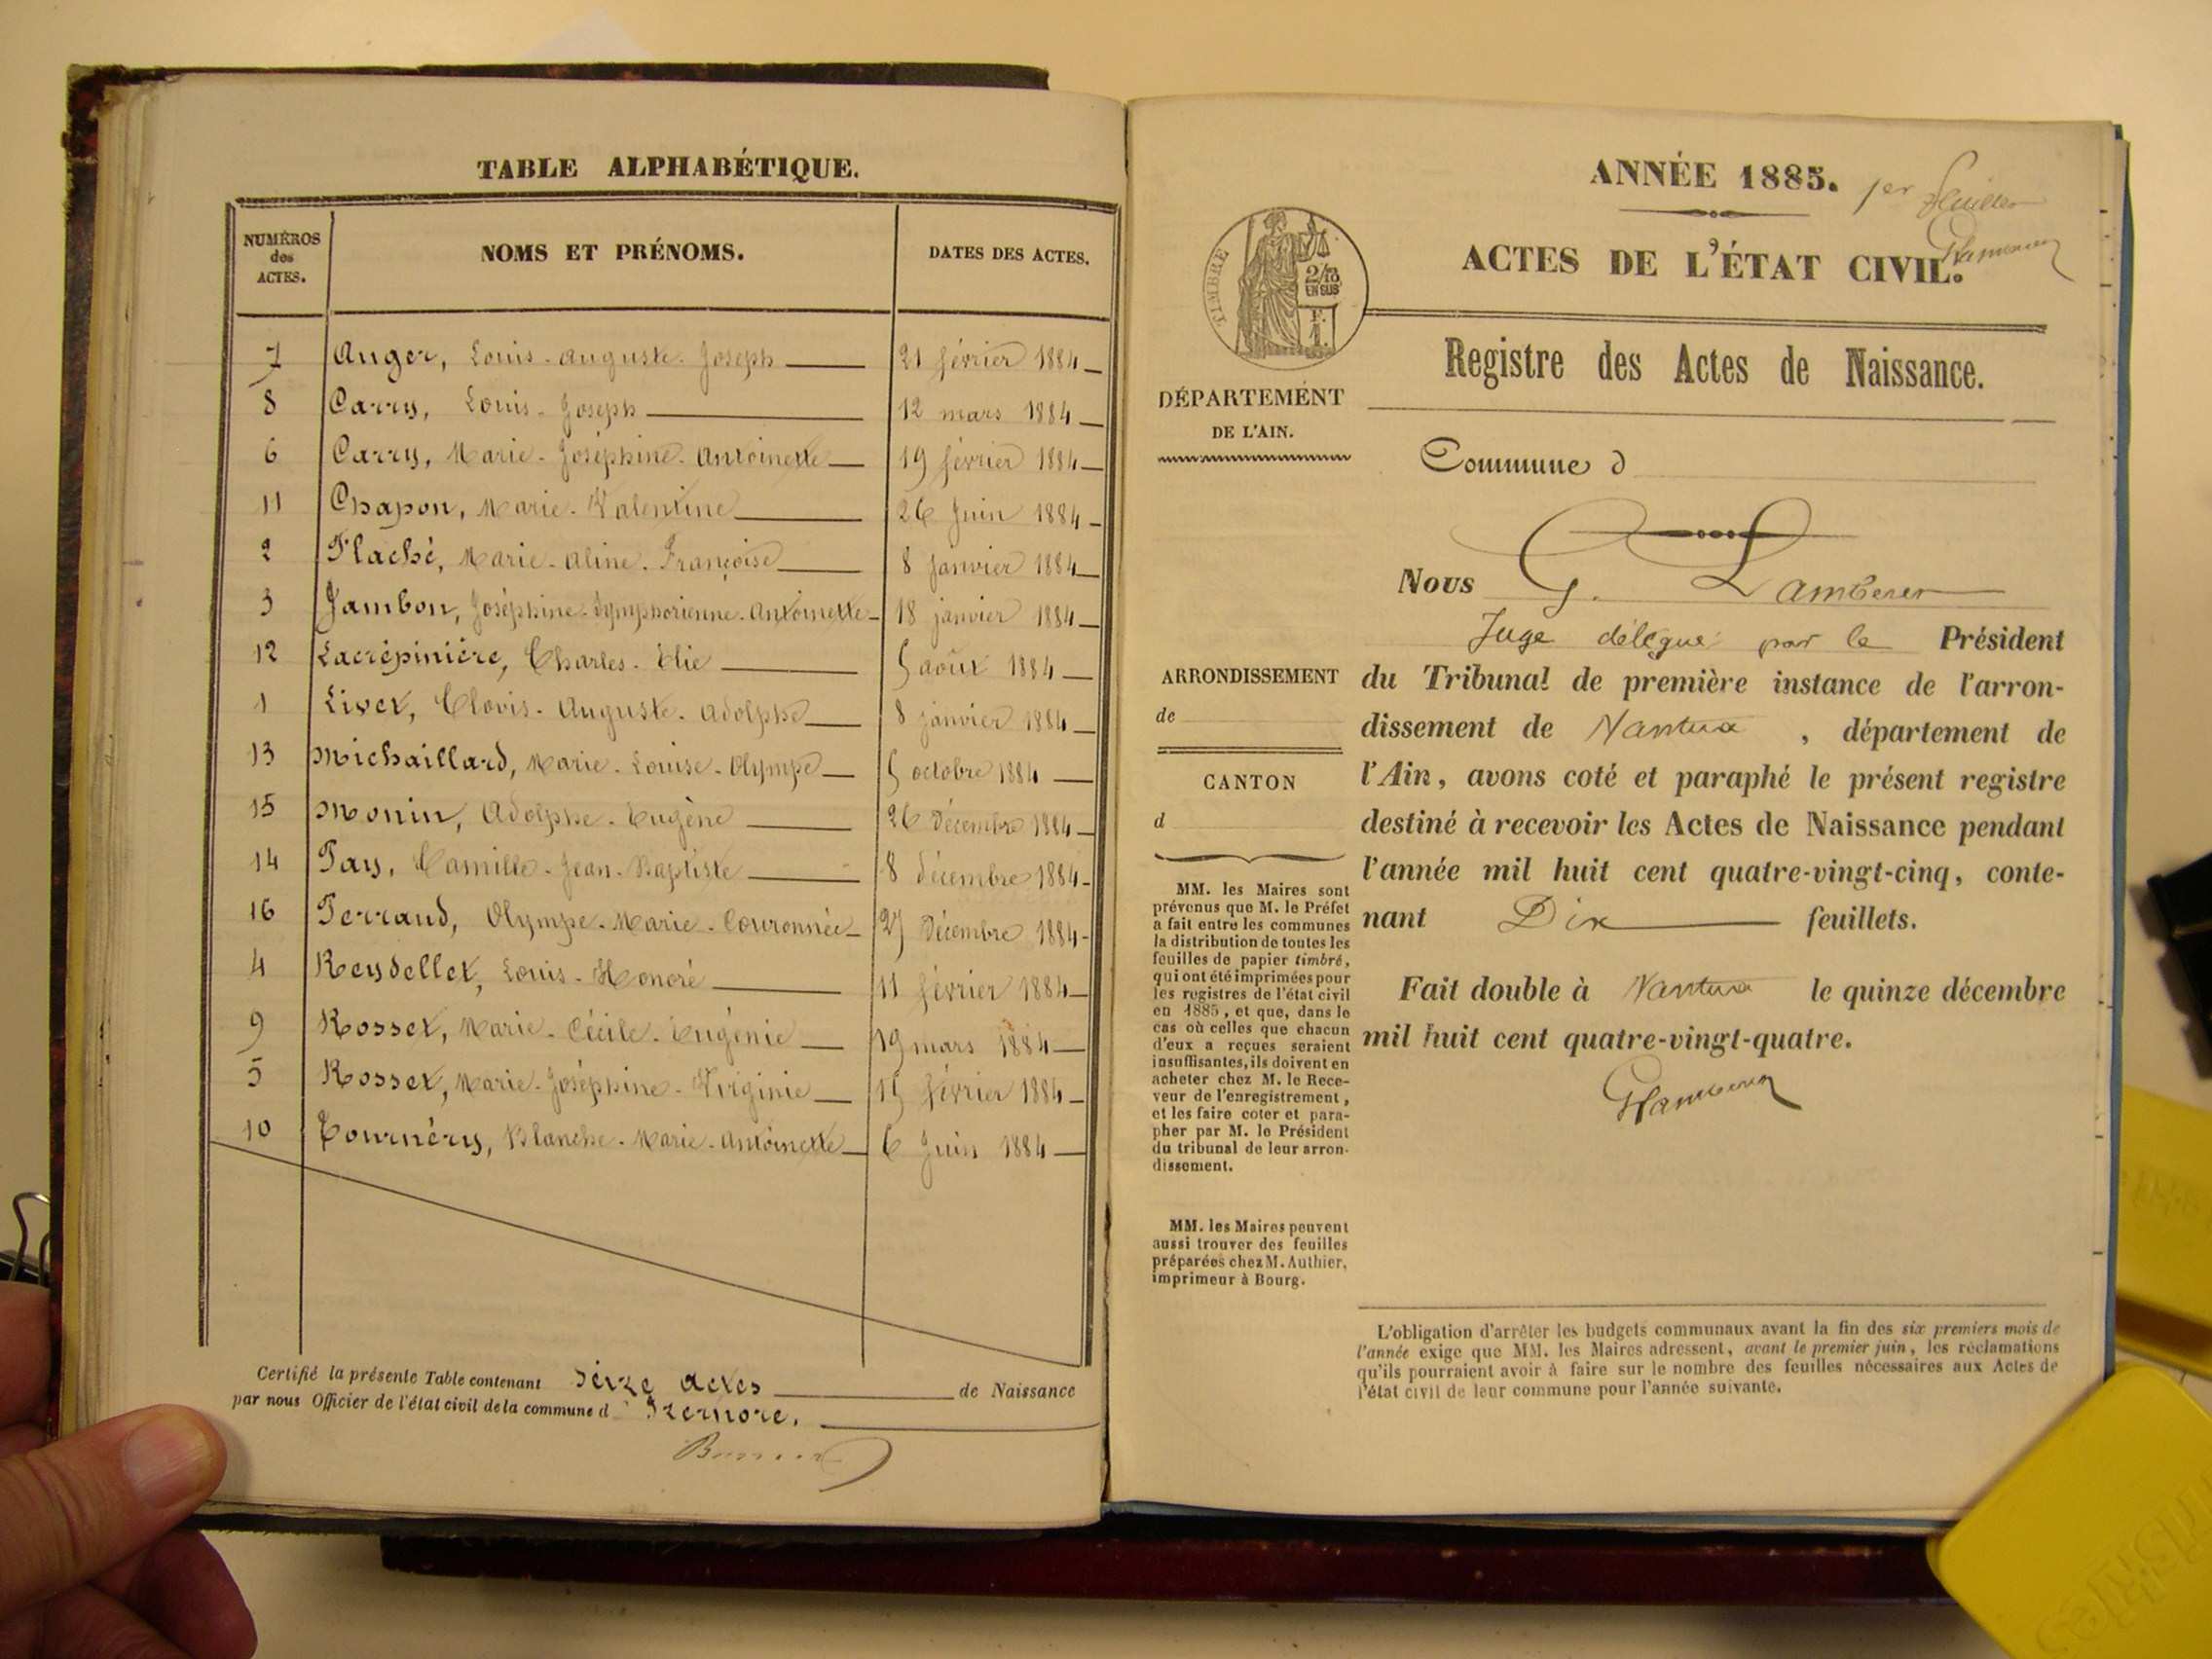 TABLE ALPHABÉTIQUE.
NUMÉROS des ACTES. NOMS ET PRÉNOMS. DATES DES ACTES.
7 Auger, Louis-Auguste-Joseph 21 février 1884
8 Carry, Louis-Joseph 12 mars 1884
6 Carry, Marie-Joséphine-Antoinette 19 février 1884
11 Chapon, Marie-Valentine 26 Juin 1884
2 Flaché, Marie-Aline-Françoise 8 janvier 1884
3 Jambon, Joséphine-Symphorienne-Antoinette 18 janvier 1884
12 Lacrépinière, Charles-Elie 5 août 1884
1 Livet, Clovis-Auguste-Adolphe 8 janvier 1884
13 Michaillard, Marie-Louise-Olympe 5 octobre 1884
15 Monin, Adolphe-Eugène 26 Décembre 1884
14 Pay, Camille-Jean-Baptiste 8 décembre 1884
16 Perraud, Olympe-Marie-Couronnée 27 Décembre 1884
4 Reydellet, Louis-Honoré 11 février 1884
9 Rosset, Marie-Cécile-Eugénie 19 mars 1884
5 Rosset, Marie-Joséphine-Virginie 15 février 1884
10 Tournéry, Blanche-Marie-Antoinette 6 Juin 1884
Certifié la présente Table contenant seize actes de Naissance
par nous Officier de l'état civil de la commune d'Izernore.
ANNÉE 1885. 1er feuillet
ACTES DE L'ÉTAT CIVIL.
TIMBRE
2/10
EN SUS
Registre des Actes de Naissance.
DÉPARTEMENT
DE L'AIN.
Commune d
Nous G. Lambert
Juge délégué par le Président
du Tribunal de première instance de l'arron-
dissement de Nantua, département de
l'Ain, avons coté et paraphé le présent registre
destiné à recevoir les Actes de Naissance pendant
l'année mil huit cent quatre-vingt-cinq, conte-
nant Dix feuillets.
Fait double à Nantua le quinze décembre
mil huit cent quatre-vingt-quatre.
ARRONDISSEMENT
de
CANTON
d
MM. les Maires sont
prévenus que M. le Préfet
a fait entre les communes
la distribution de toutes les
feuilles de papier timbré,
qui ont été imprimées pour
les registres de l'état civil
en 1885, et que, dans le
cas où celles que chacun
d'eux a reçues seraient
insuffisantes, ils doivent en
acheter chez M. le Rece-
veur de l'enregistrement,
et les faire coter et para-
pher par M. le Président
du tribunal de leur arron-
dissement.
MM. les Maires peuvent
aussi trouver des feuilles
préparées chez M. Authier,
imprimeur à Bourg.
L'obligation d'arrêter les budgets communaux avant la fin des six premiers mois de
l'année exige que MM. les Maires adressent, avant le premier juin, les réclamations
qu'ils pourraient avoir à faire sur le nombre des feuilles nécessaires aux Actes de
l'état civil de leur commune pour l'année suivante.